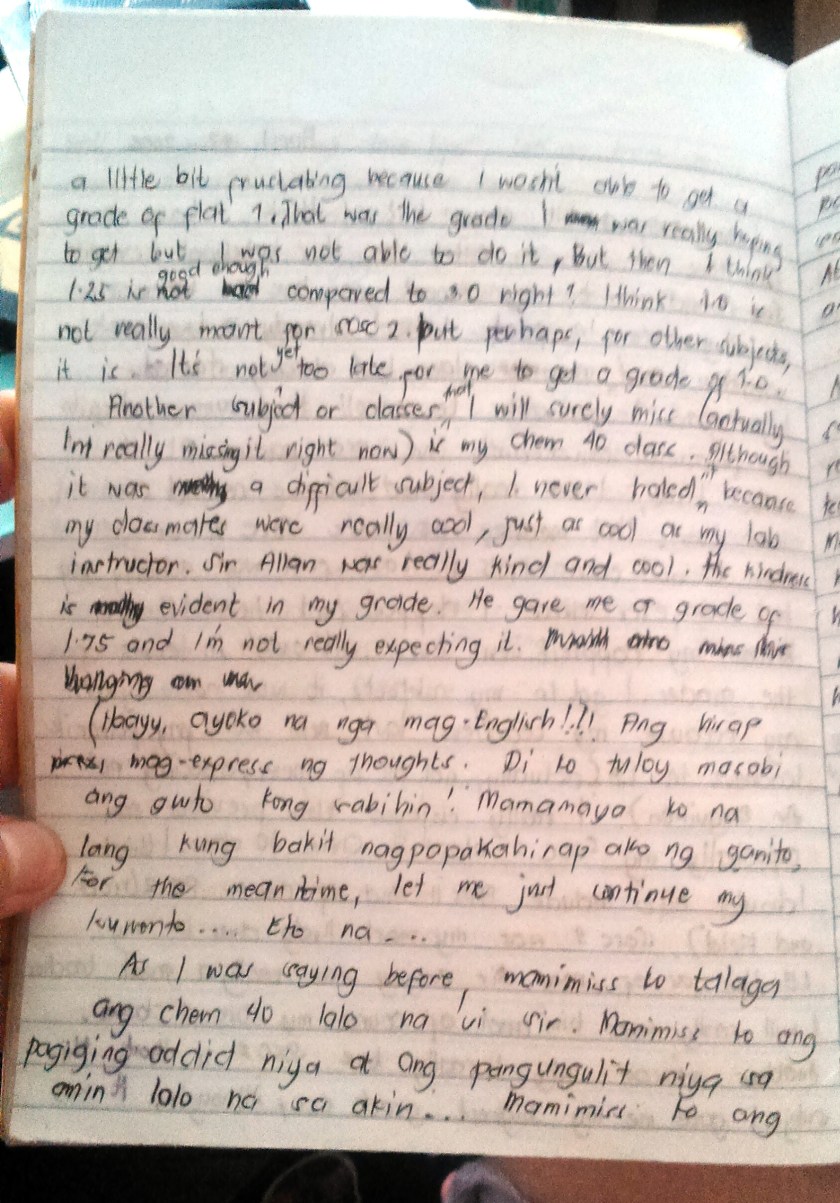 a little bit fructating because I wasn't able to get a
grade of flat 1. That was the grade I was really hoping
to get but, I was not able to do it, But then I think
good enough
1.25 is not bad compared to 3.0 right? I think 1.0 is
not really meant for sosc 2. but perhaps, for other subjects,
it is. It's not yet too late for me to get a grade of 1.0.
Another subject or classes that I will surely miss (actually
Im really missing it right now) is my chem 40 class. Although
it was a difficult subject, I never hated it because
my classmates were really cool, just as cool as my lab
instructor. Sir Allan was really kind and cool. His kindness
is evident in my grade. He gave me a grade of
1.75 and I'm not really expecting it.
(Ibayy, ayoko na nga mag-English!!! Ang hirap
mag-express ng thoughts. Di ko tuloy masabi
ang gusto kong sabihin! Mamamaya ko na
lang kung bakit nagpapakahirap ako ng ganito,
For the mean time, let me just continue my
kuwento .... Eto na ...
As I was saying before, mamimiss ko talaga
ang chem 40 lalo na 'vi sir. Mamimiss ko ang
pagiging addid niya at ang pangungulit niya sa
amin lalo na sa akin... Mamimiss ko ang